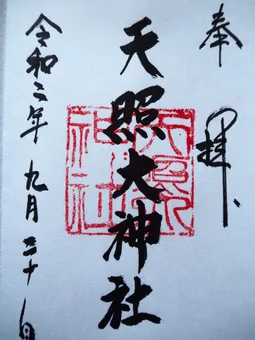 奉拝
天照大神社
令和二年九月二十日